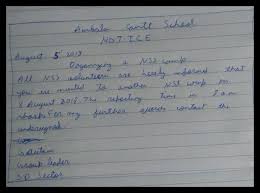 Ambala Cantt School
NOTICE
August 5 2018
Organizing a NSS camp
All NSS volunteers are hereby informed that
you are invited to another NSS camp on
8 August 2018. The reporting time is 8 a.m
sharp. For any further queries contact the
undersigned
Group leader
Sector